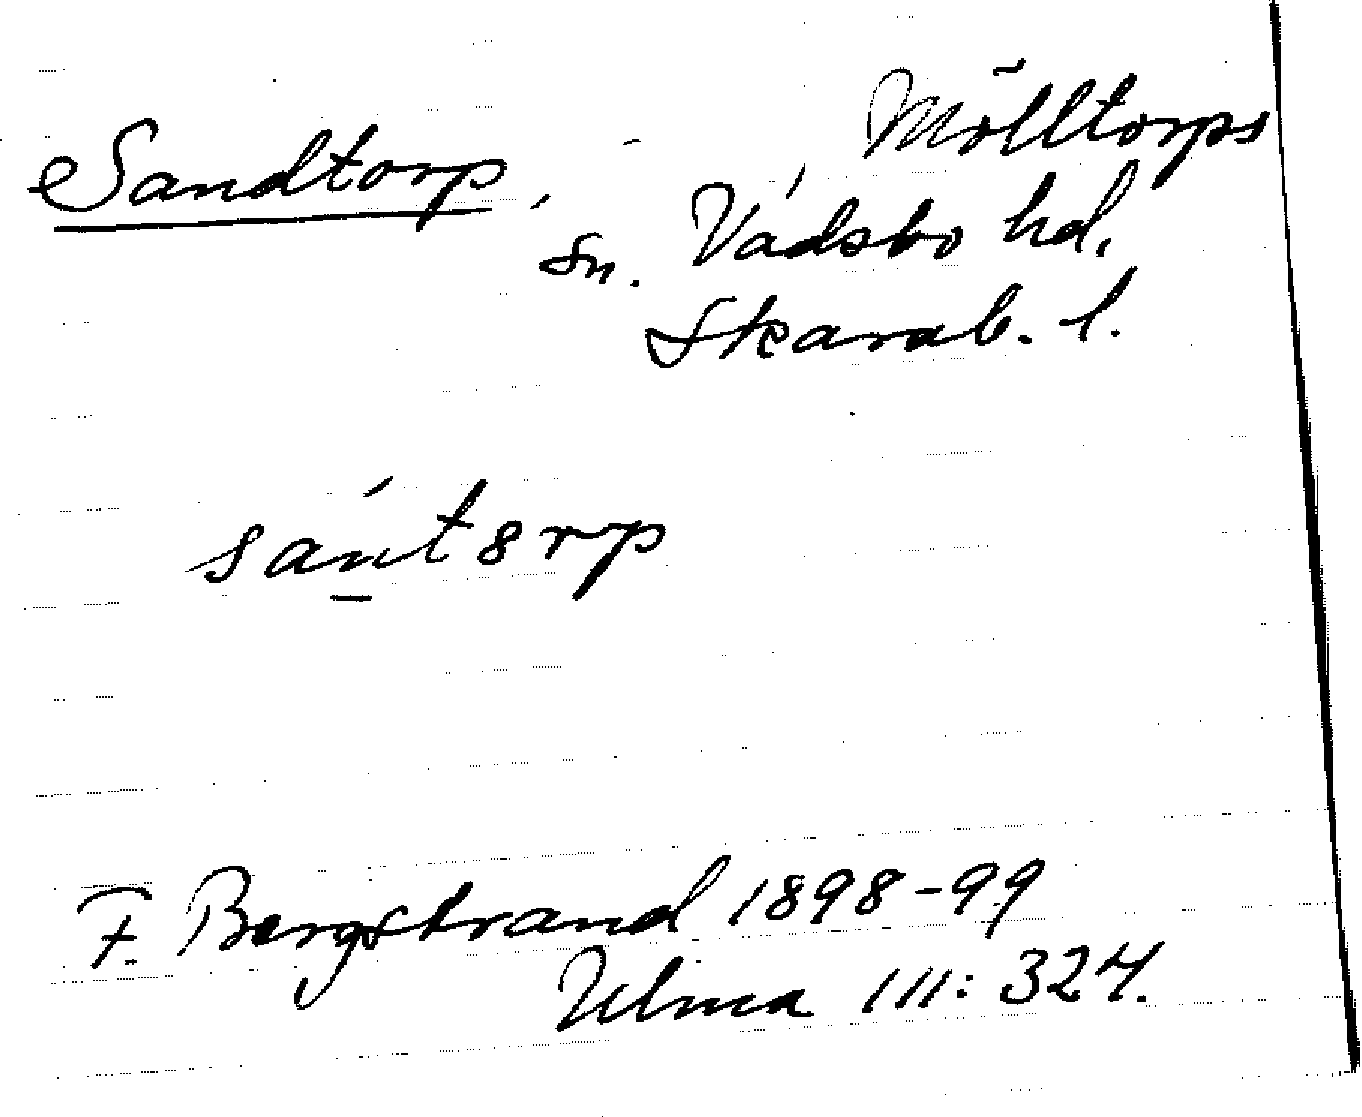 Sandtorp, Mölltorps
sn. Vadsbo hd,
Skarab. l.
sántɵrp
F. Bergstrand 1898-99
Ulma 111: 324.